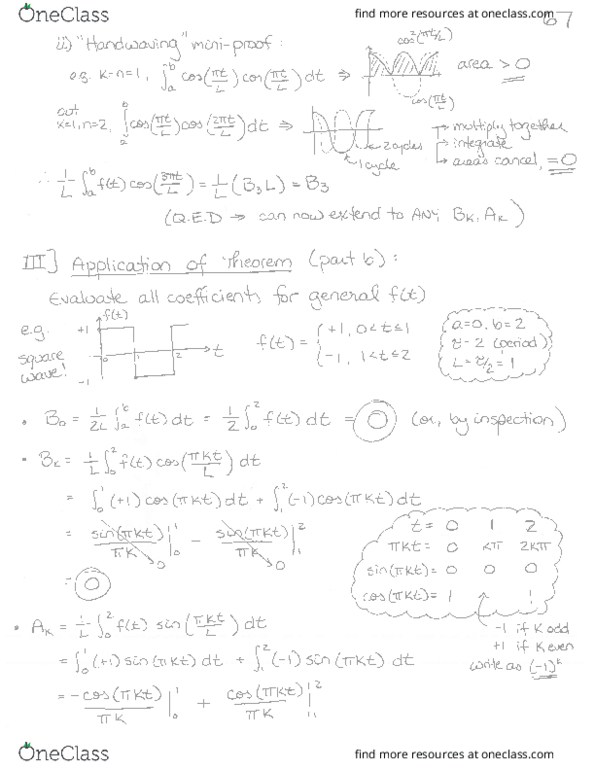 OneClass
find more resources at oneclass.com
67
ii) "Handwaving" mini-proof :
e.g. k=n=1, ∫_a^b cos(πt/L) cos(πt/L) dt ⇒
cos²(πt/L)
cos(πt/L)
area > 0
but
k=1, n=2, ∫_a^b cos(πt/L) cos(2πt/L) dt ⇒
2 cycles
1 cycle
→ multiply together
→ integrate
→ areas cancel, = 0
∴ 1/L ∫_a^b f(t) cos(3πt/L) = 1/L (B₃ L) = B₃
(Q.E.D → can now extend to ANY B_K, A_K)
III] Application of Theorem (part b) :
Evaluate all coefficients for general f(t)
e.g.
square
wave!
f(t)
+1
0
1
2
t
-1
f(t) = { +1, 0<t≤1
-1, 1<t≤2
a=0, b=2
τ = 2 (period)
L = τ/2 = 1
• B₀ = 1/2L ∫_a^b f(t) dt = 1/2 ∫_0^2 f(t) dt = 0 (or, by inspection)
• B_K = 1/L ∫_0^2 f(t) cos(πKt/L) dt
= ∫_0^1 (+1) cos(πKt) dt + ∫_1^2 (-1) cos(πKt) dt
= sin(πKt)/πK |_0^1 - sin(πKt)/πK |_1^2
0
0
= 0
t = 0 1 2
πKt = 0 Kπ 2Kπ
sin(πKt) = 0 0 0
cos(πKt) = 1 1
-1 if K odd
+1 if K even
write as (-1)^k
• A_K = 1/L ∫_0^2 f(t) sin(πKt/L) dt
= ∫_0^1 (+1) sin(πKt) dt + ∫_1^2 (-1) sin(πKt) dt
= -cos(πKt)/πK |_0^1 + cos(πKt)/πK |_1^2
OneClass
find more resources at oneclass.com